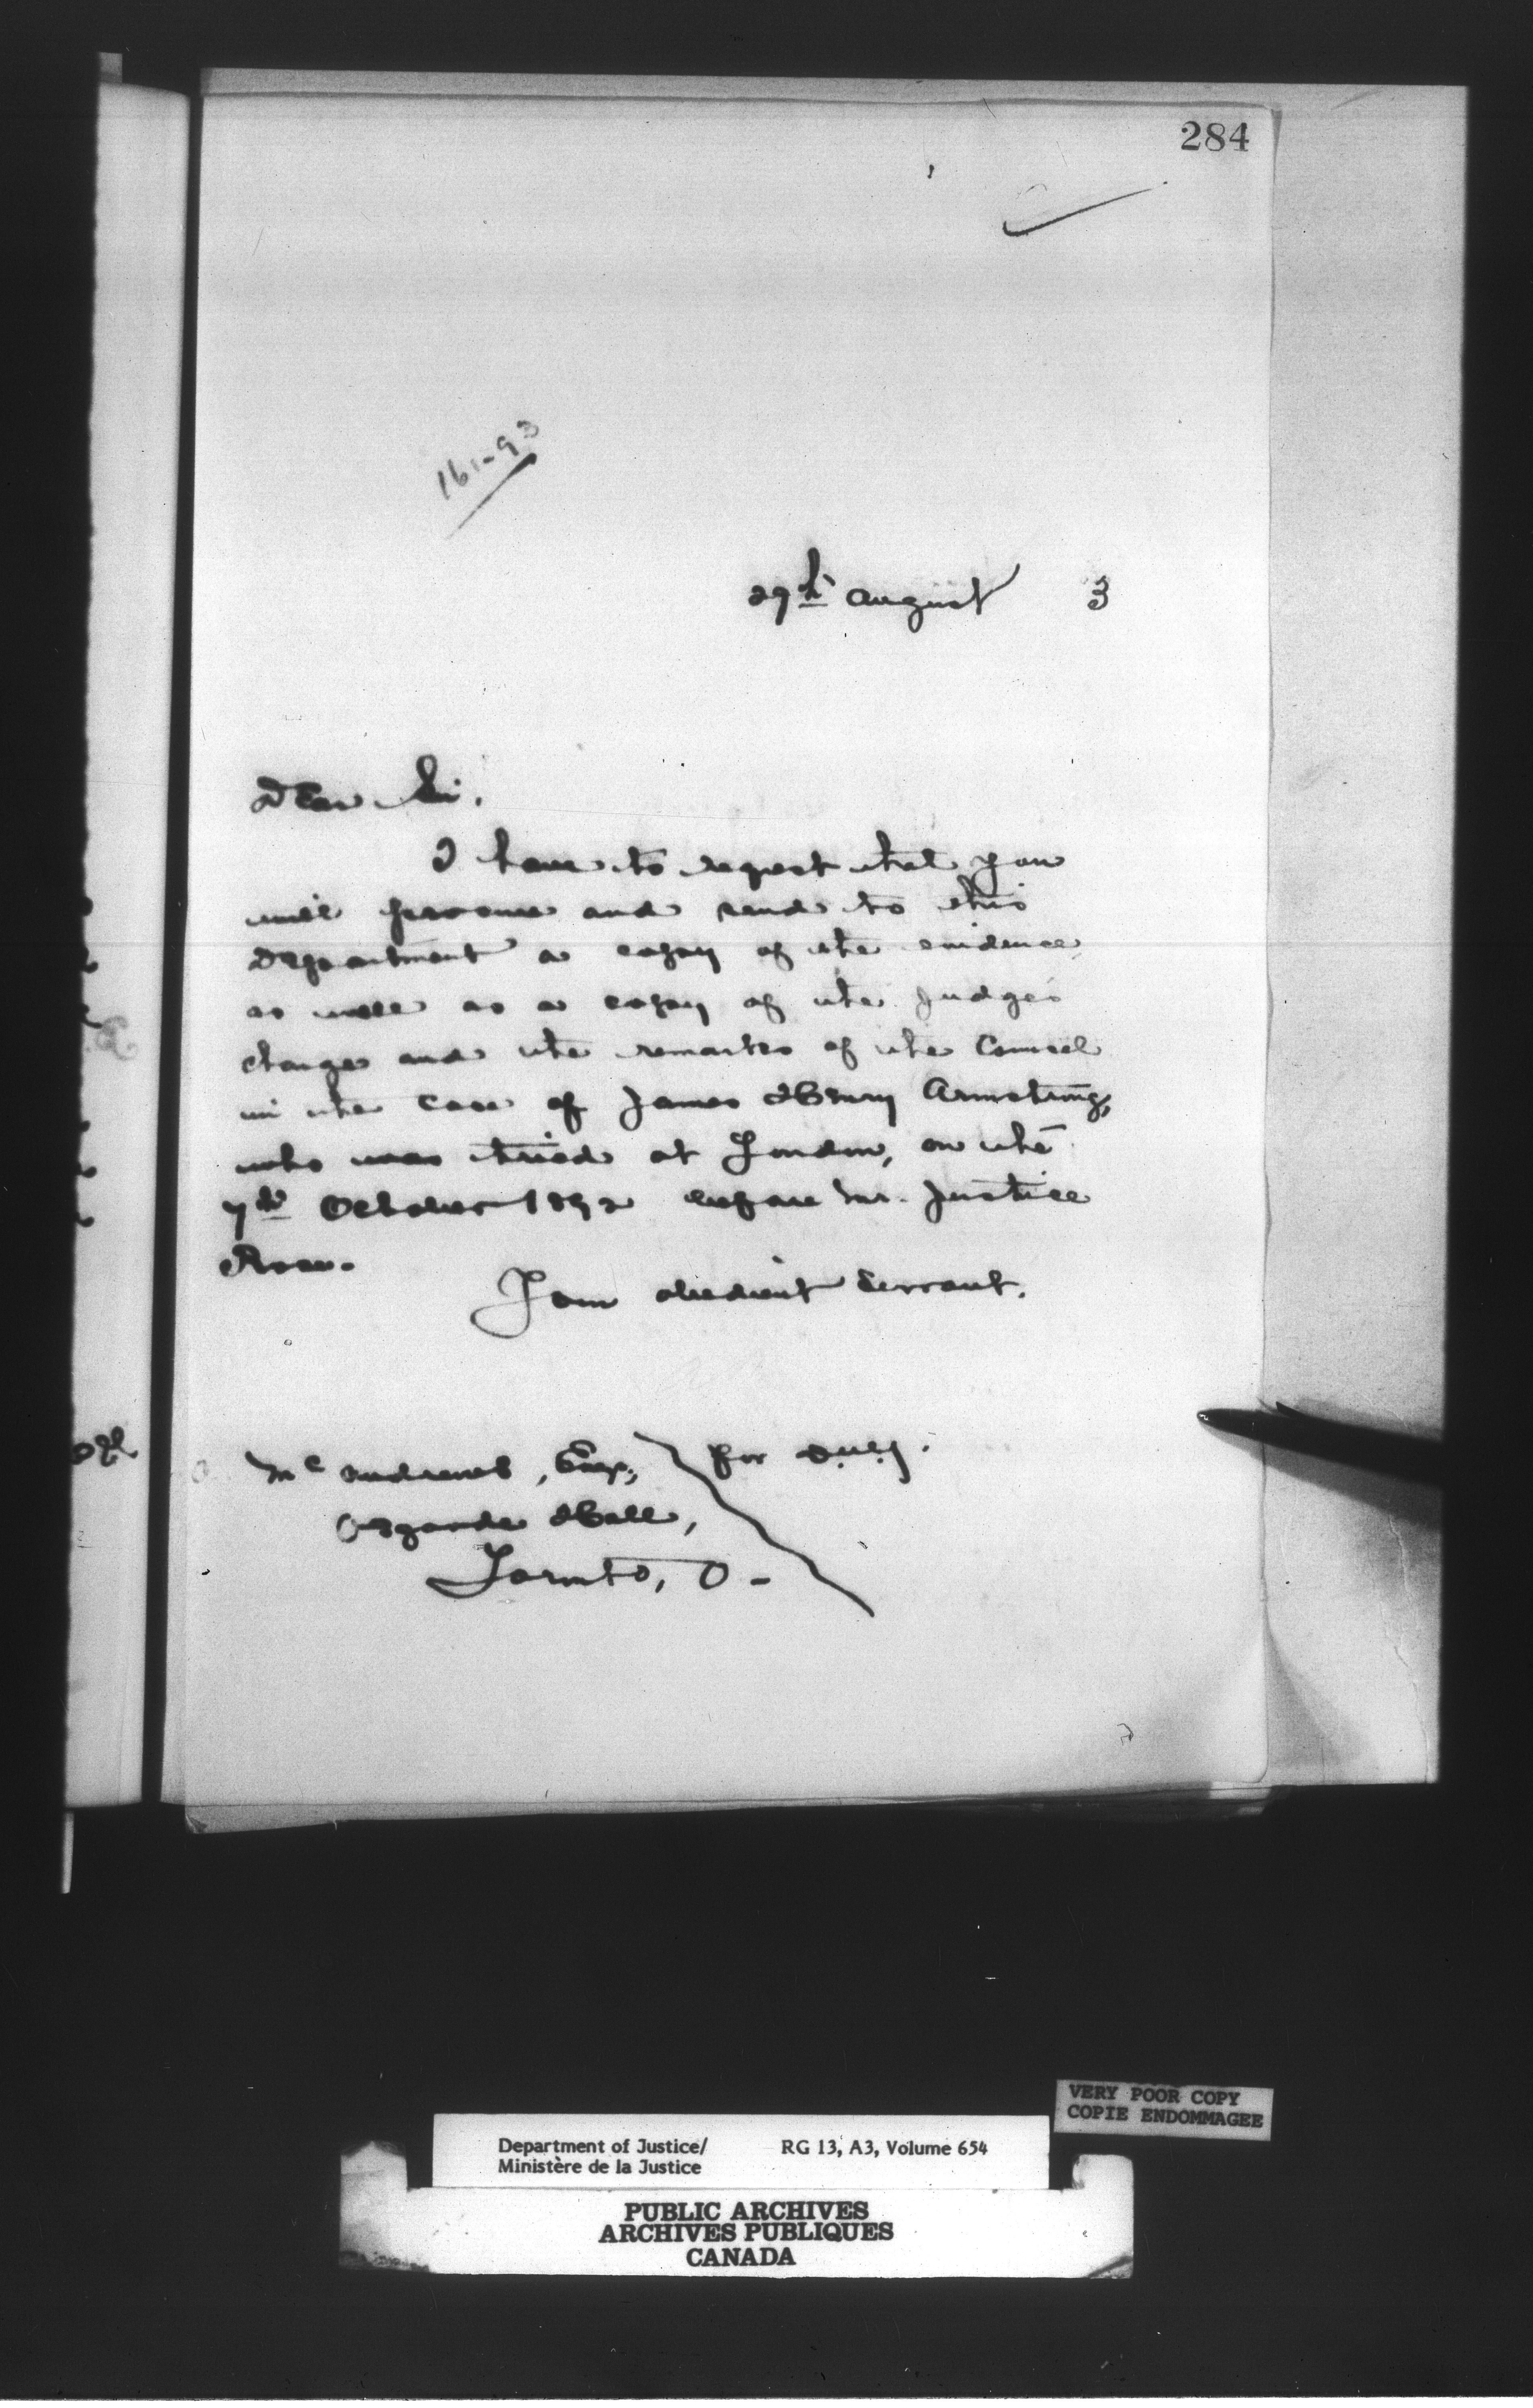 284
161-93
29th August 3
Dear Sir,
I have to request that you
will procure and send to this
Department a copy of the evidence,
as well as a copy of the Judge's
charge and the remarks of the Counsel
in the case of James Henry Armstrong,
who was tried at London, on the
7th October 1892 before Mr. Justice
Rose.
I am obedient Servant,
for D.M.J.
Mc Andrews, Esq,
Osgoode Hall,
Toronto, O-
VERY POOR COPY
COPIE ENDOMMAGEE
Department of Justice/ RG 13, A3, Volume 654
Ministère de la Justice
PUBLIC ARCHIVES
ARCHIVES PUBLIQUES
CANADA